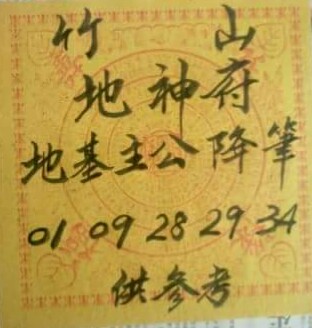 竹山
地神府
地基主公降筆
01 09 28 29 34
供參考